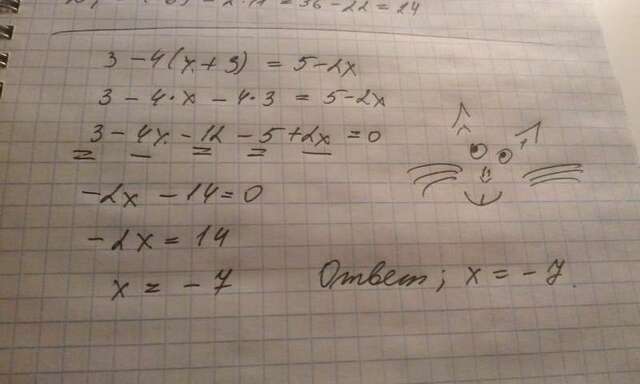 = 36 - 22 = 14
3 - 4(x + 3) = 5 - 2x
3 - 4·x - 4·3 = 5 - 2x
3 - 4x - 12 - 5 + 2x = 0
-2x - 14 = 0
-2x = 14
x = -7
Ответ; x = -7.